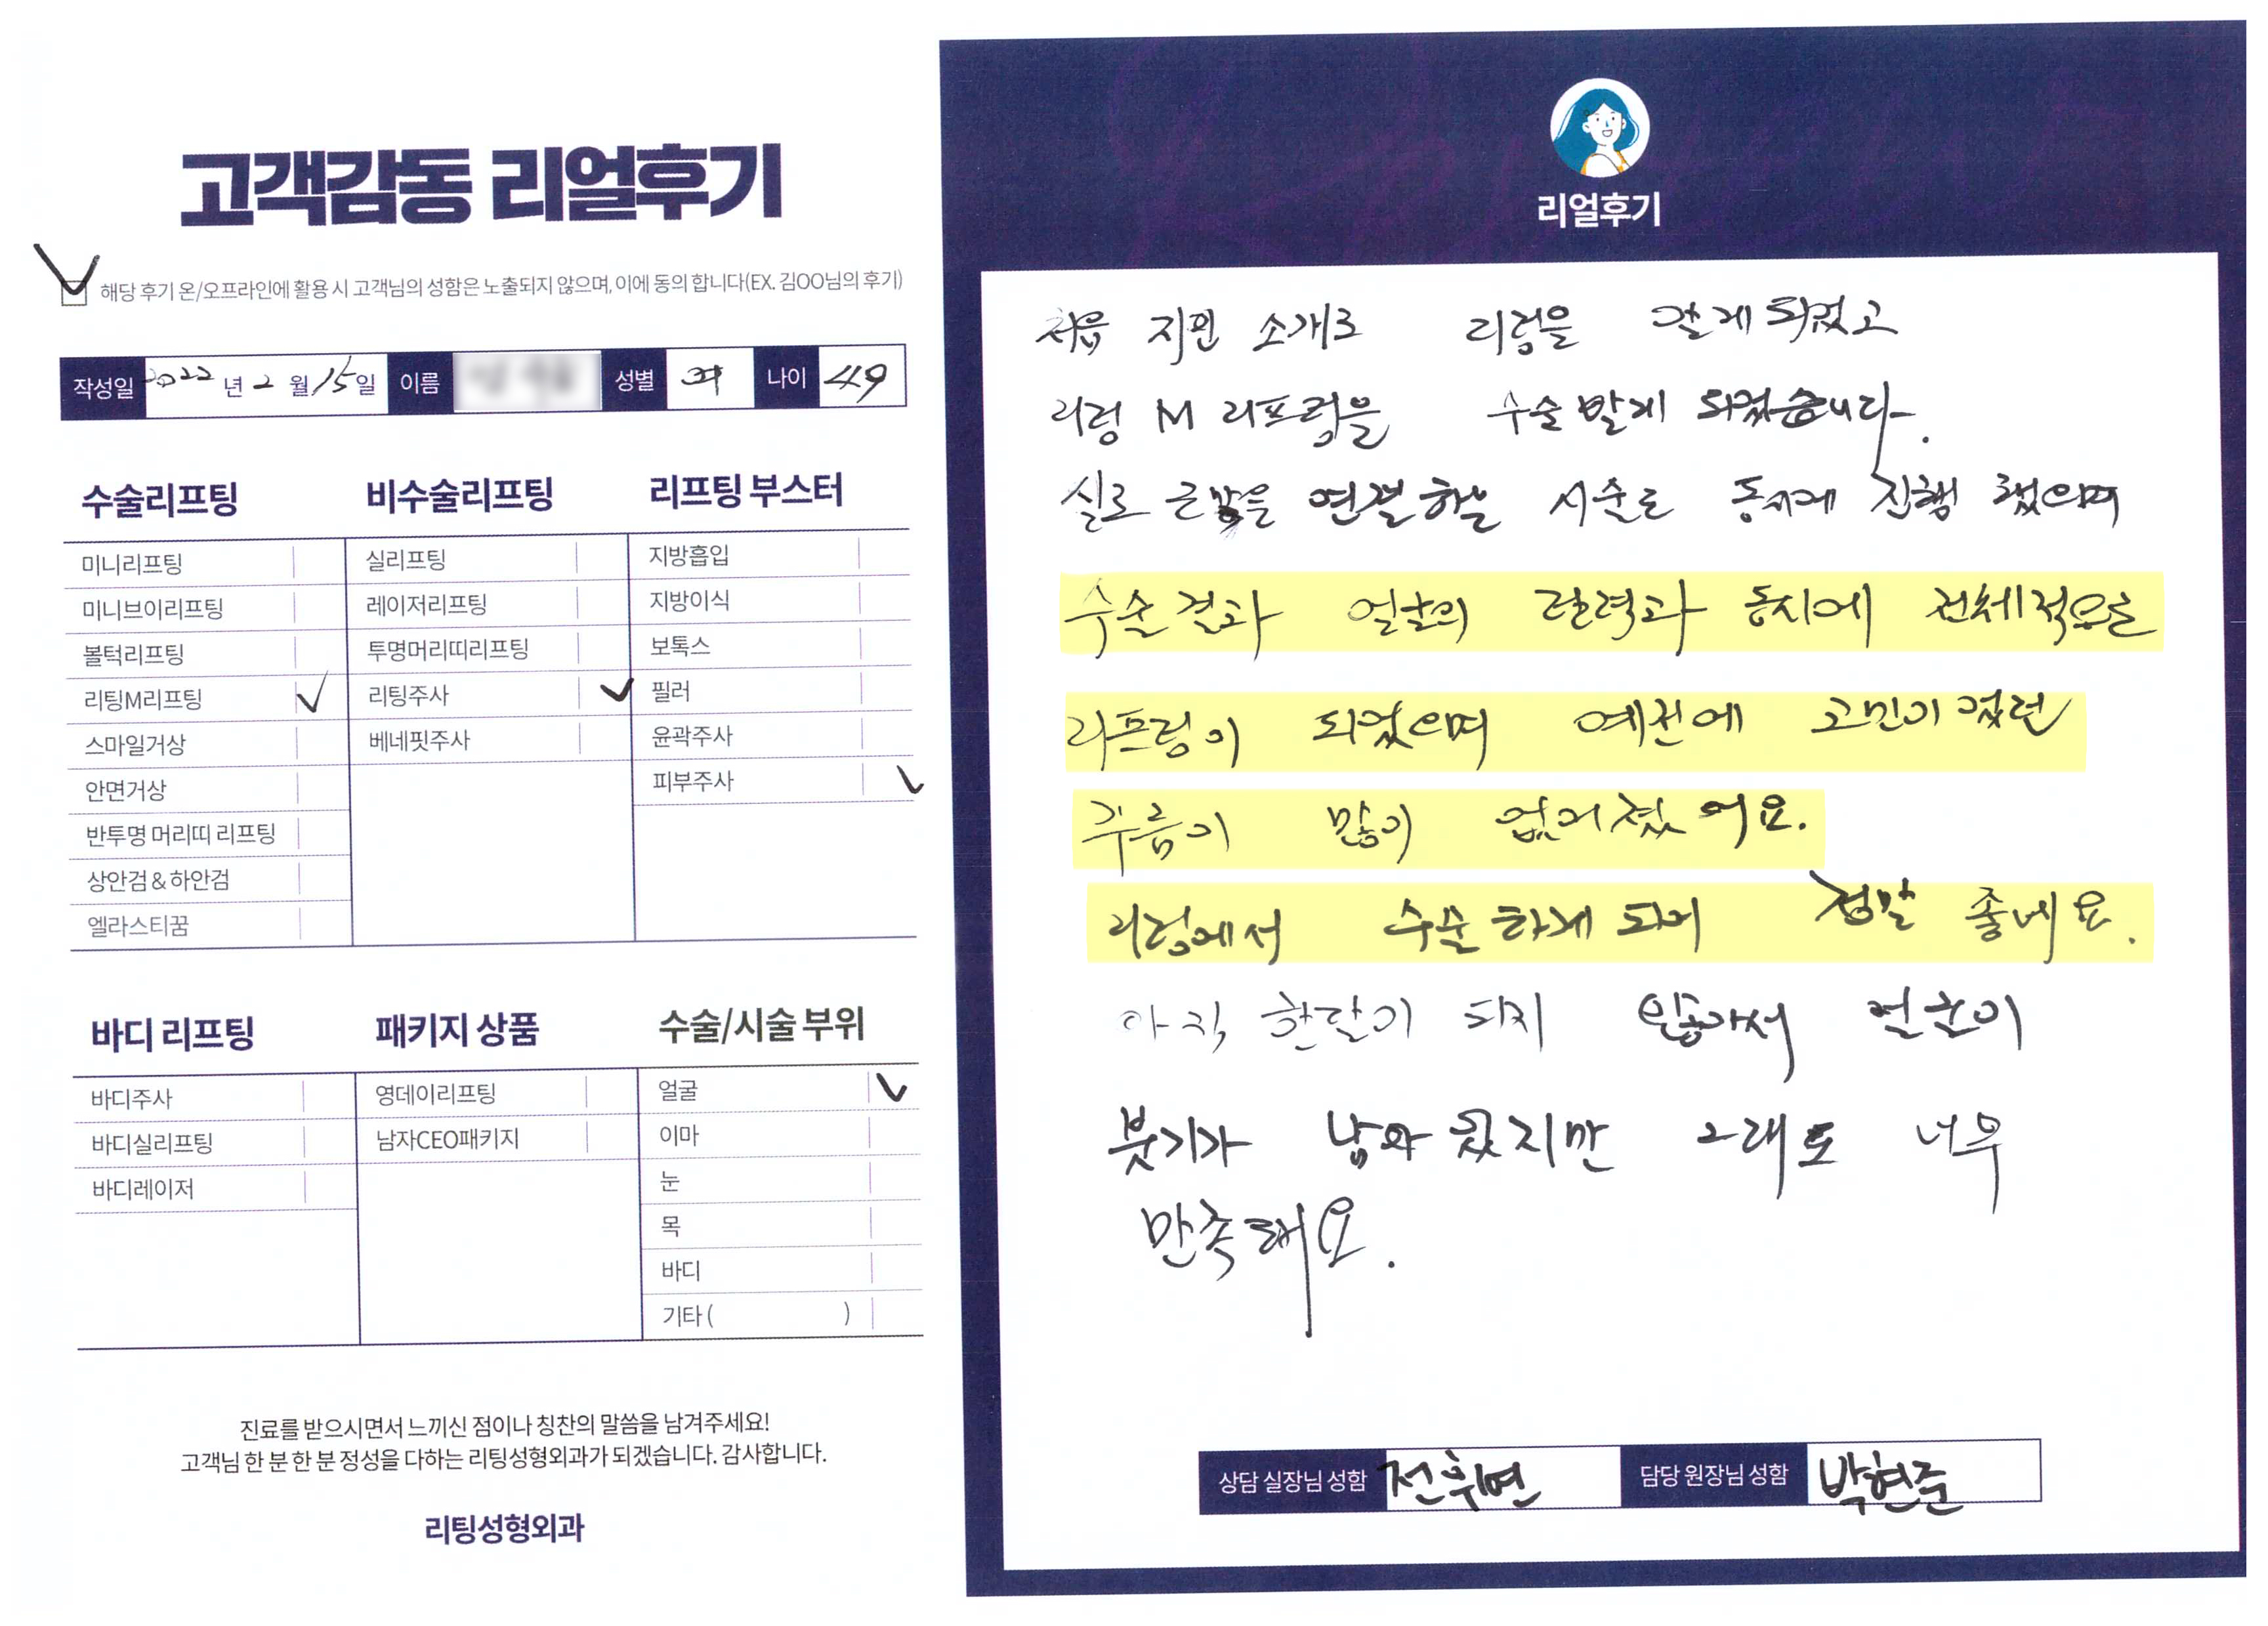 고객감동 리얼후기
해당 후기 온/오프라인에 활용 시 고객님의 성함은 노출되지 않으며, 이에 동의 합니다(EX. 김OO님의 후기)
작성일 2022 년 2 월 15 일 이름 성별 여 나이 49
수술리프팅
미니리프팅
미니브이리프팅
볼턱리프팅
리팅M리프팅
스마일거상
안면거상
반투명 머리띠 리프팅
상안검 & 하안검
엘라스티꿈
비수술리프팅
실리프팅
레이저리프팅
투명머리띠리프팅
리팅주사
베네핏주사
리프팅 부스터
지방흡입
지방이식
보톡스
필러
윤곽주사
피부주사
바디 리프팅
바디주사
바디실리프팅
바디레이저
패키지 상품
영데이리프팅
남자CEO패키지
수술/시술 부위
얼굴
이마
눈
목
바디
기타 ( )
진료를 받으시면서 느끼신 점이나 칭찬의 말씀을 남겨주세요!
고객님 한 분 한 분 정성을 다하는 리팅성형외과가 되겠습니다. 감사합니다.
리팅성형외과
리얼후기
처음 지인 소개로 리팅을 알게 되었고
리팅 M 리프팅을 수술 받게 되었습니다.
실로 연결하는 시술도 동시에 진행 했으며
수술 결과 얼굴의 탄력과 동시에 전체적으로
리프팅이 되었으며 예전에 고민이었던
주름이 많이 없어졌어요.
리팅에서 수술하게 되어 정말 좋네요.
아직 한달이 되지 않아서 얼굴이
붓기가 남아 있지만 그래도 너무
만족해요.
상담 실장님 성함 전휘연 담당 원장님 성함 박현준